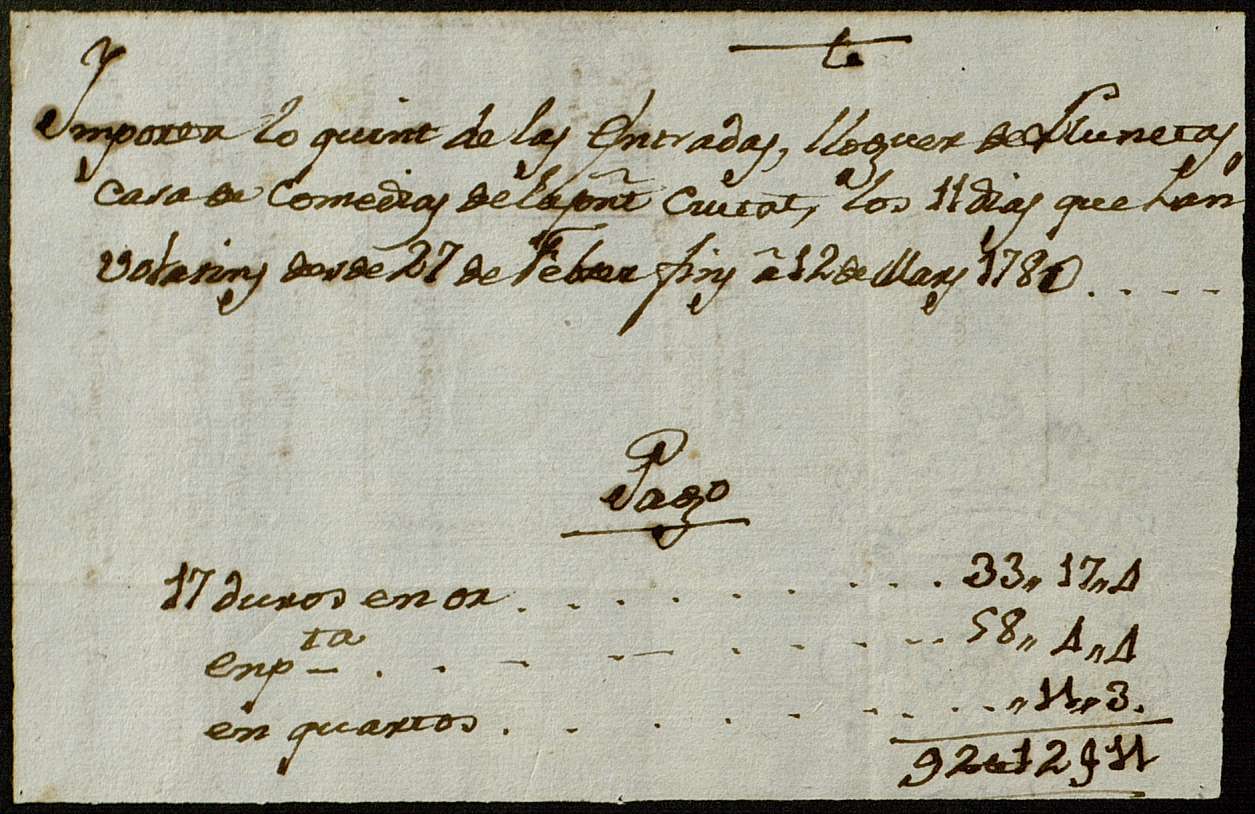 Importan lo quint de las Entradas, lloguer de Llunetas,
casa de Comedias de la pnt Ciutat, los 11 dias que han
volatins desde 27 de Febrer fins â 12 de Mars 1780 . . . .
Pago
17 duros en or . . . . . . . . . . 33,, 17,, 4
en p ta . . . . . . . . 58,, 4,, 4
en quartos . . . . . . . . ,, 11,, 3.
92 12 § 11